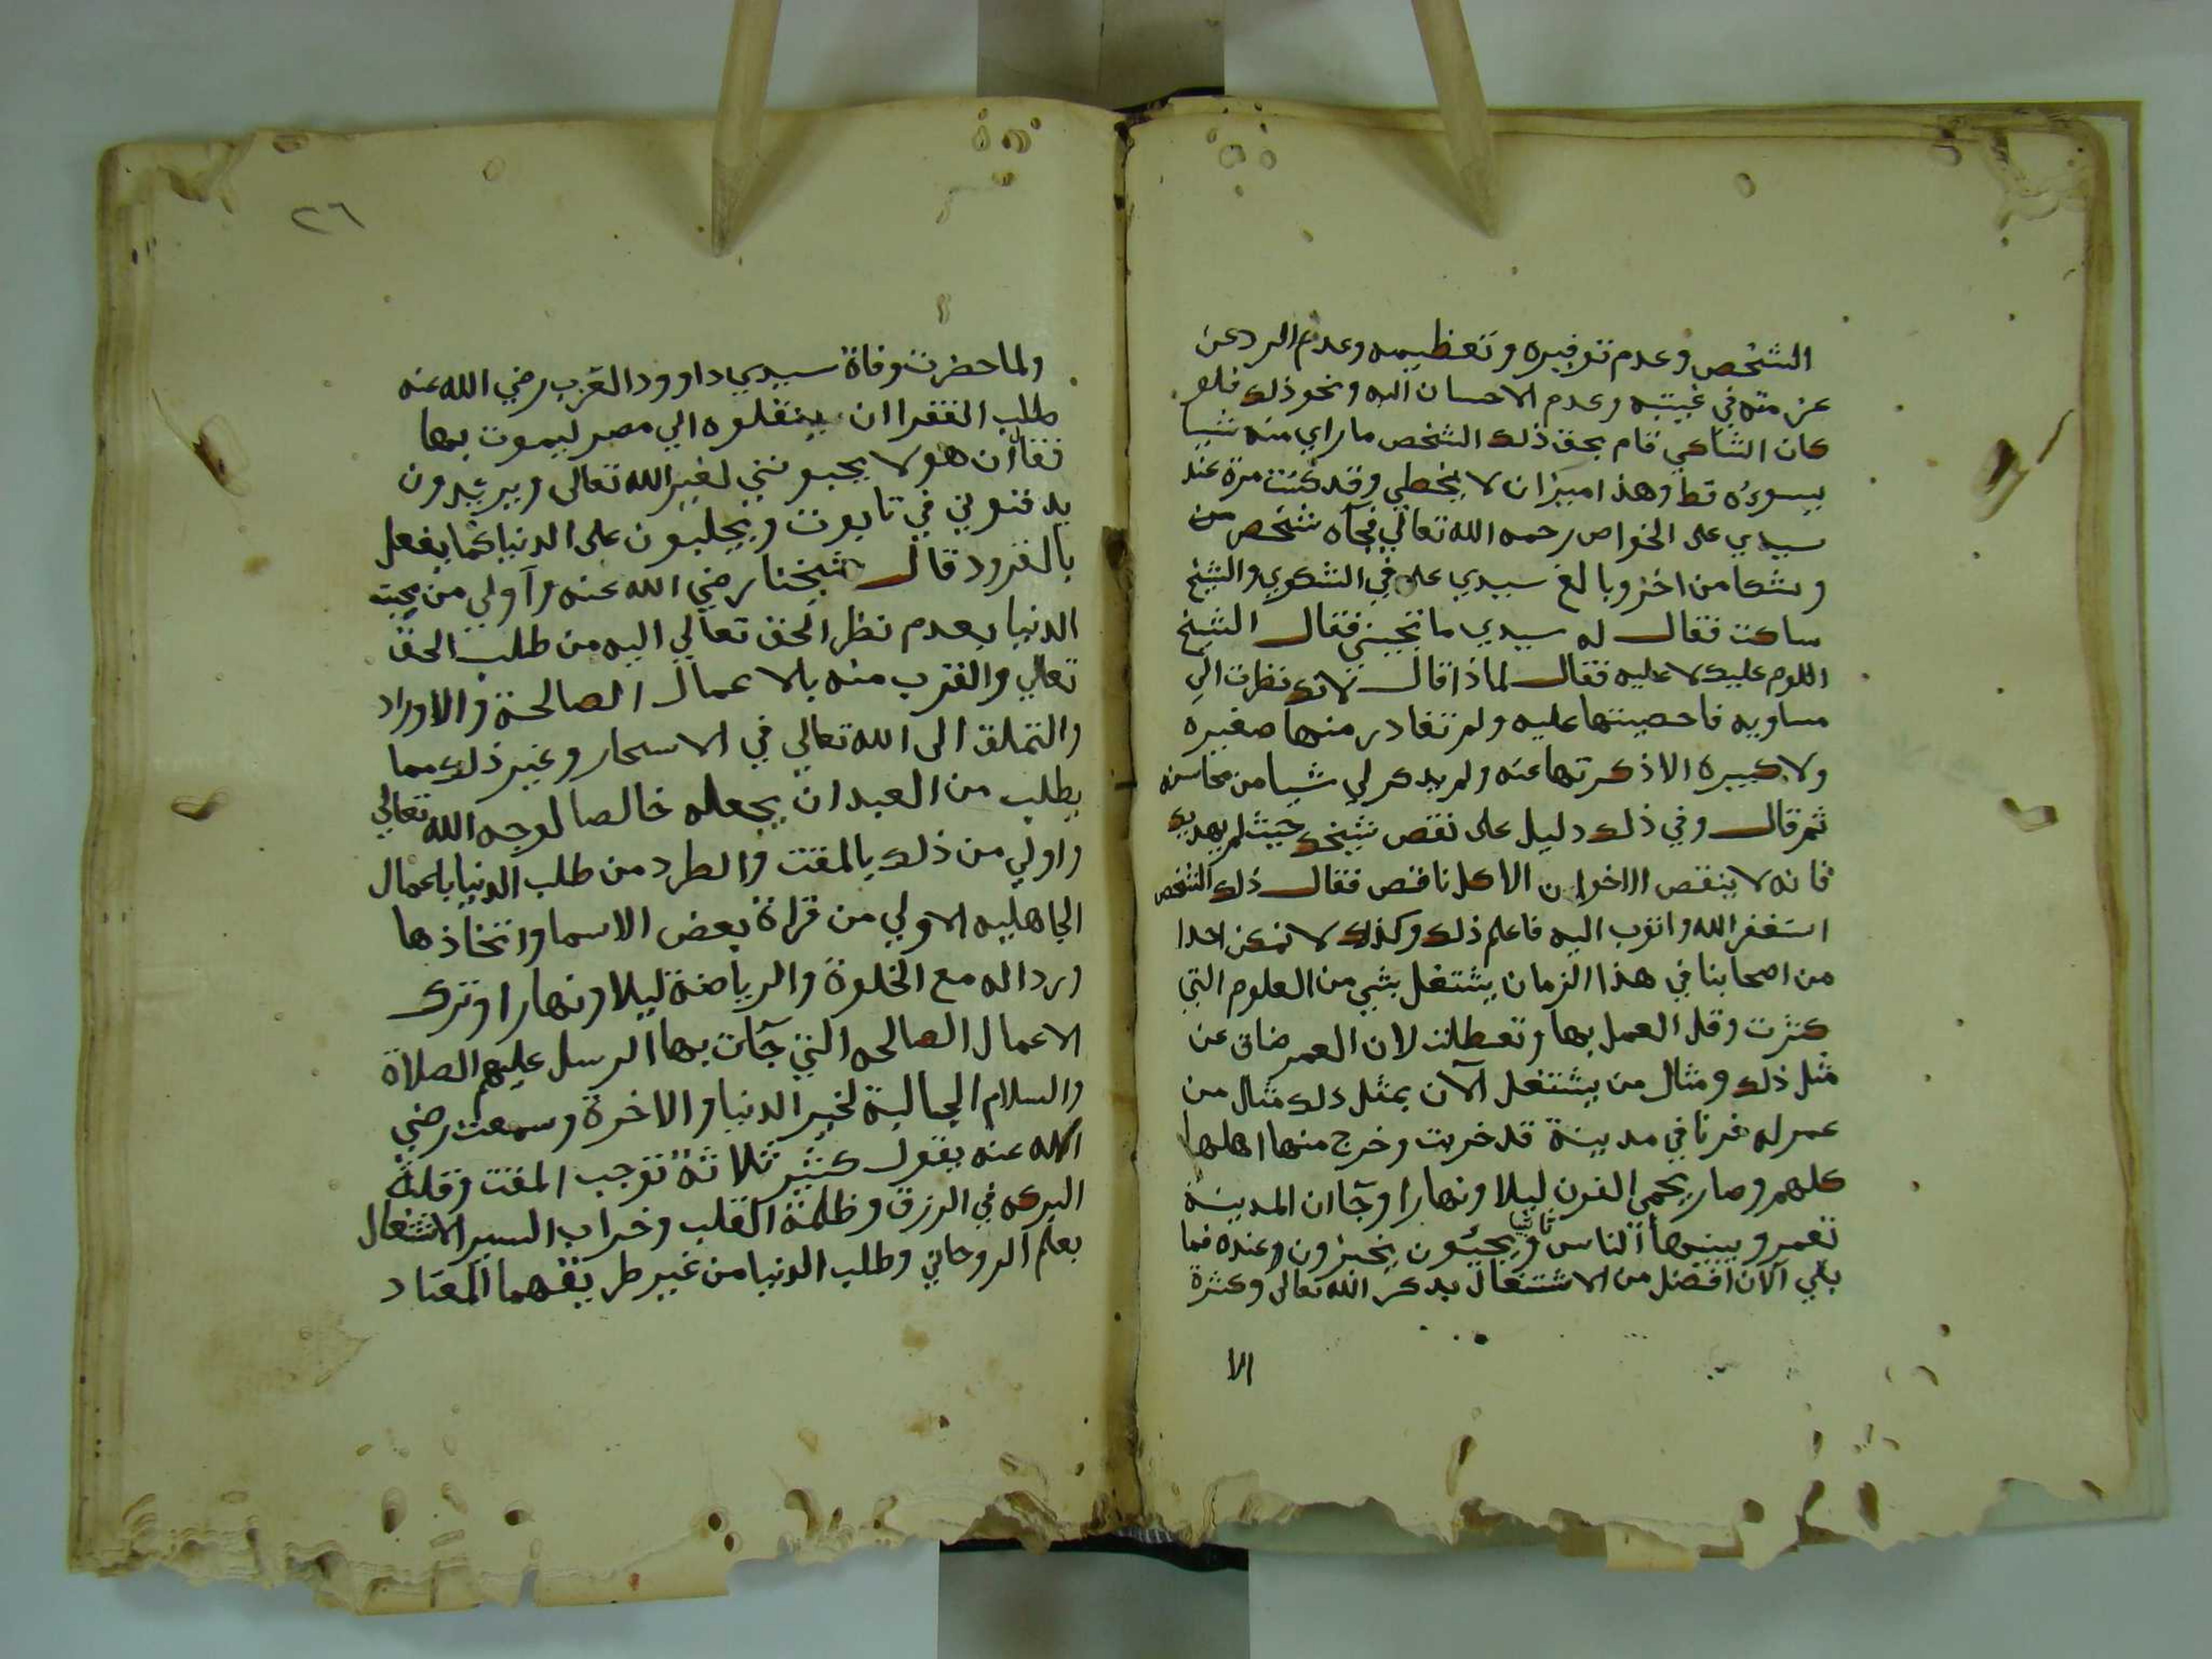 الشخص وعدم توقيره وتعظيمه وعدم الرد عن
عن مته في غيبته وعدم الاحسان اليه ونحو ذلك فلو
كان الشاكي قام بحق ذلك الشخص ما راي منه شيا
يسوءه قط وهذا ميزان لا يخطي وقد كنت مرة عند
سيدي على الخواص رحمه الله تعالي فجآه شخص من
وشكا من اخر وبالغ سيدي علي في الشكوي والشيخ
ساكت فقال له سيدي ما تجيبني فقال الشيخ
اللوم عليك لا عليه فقال لماذا قال لانك نظرت الي
مساويه فاحصيتها عليه ولم تغادر منها صغيره
ولا كبيره الا ذكرتها عنه ولم يذكر لي شيا من محاسنه
ثم قال وفي ذلك دليل على نقص شيخك حيث لم يهذبك
فانه لا ينقص الاخوان الا كل ناقص فقال ذلك الشخص
استغفر الله واتوب اليه فاعلم ذلك وكذلك لا تمكن احدا
من اصحابنا في هذا الزمان يشتغل بشي من العلوم التي
كثرت وقل العمل بها وتعطلت لان العمر ضاق عن
مثل ذلك ومثال من يشتغل الآن بمثل ذلك مثال من
عمر له فرنا في مدينة قد خربت وخرج منها اهلها
كلهم وصار يحمي الفرن ليلا ونهارا وجآ ان المدينة
تعمر ويبنيها الناس ثانيا ويجيئون يخبزون وعنده فما
بقي الآن افضل من الاشتغال بذكر الله تعالى وكثرة
الا
٢٦
ولما حضرت وفاة سيدي داوود العزب رضي الله عنه
طلب الفقرا ان ينقلوه الي مصر ليموت بها
فقال ان هولا يحبونني لغير الله تعالى ويريدون
يدفنوني في تابوت ويجلبون على الدنيا كما يفعل
بالقرود قال شيخنا رضي الله عنه وآولي من محبته
الدنيا بعدم نظر الحق تعالي اليه من طلب الحق
تعالي والقرب منه بالاعمال الصالحة والاوراد
والتملق الى الله تعالي في الاسحار وغير ذلك مما
يطلب من العبد ان يجعله خالصا لوجه الله تعالي
واولي من ذلك بالمقت والطرد من طلب الدنيا باعمال
الجاهليه الاولي من قراة بعض الاسما واتخاذها
وردا له مع الخلوة والرياضة ليلا ونهارا وترك
الاعمال الصالحه التي جآت بها الرسل عليهم الصلاة
والسلام الجالبة لخير الدنيا والاخرة وسمعت رضي
الله عنه يقول كثير ثلاثة توجب المقت وقلة
البركه في الرزق وظلمة القلب وخراب السير الاشتغال
بعلم الروحاني وطلب الدنيا من غير طريقهما المعتاد